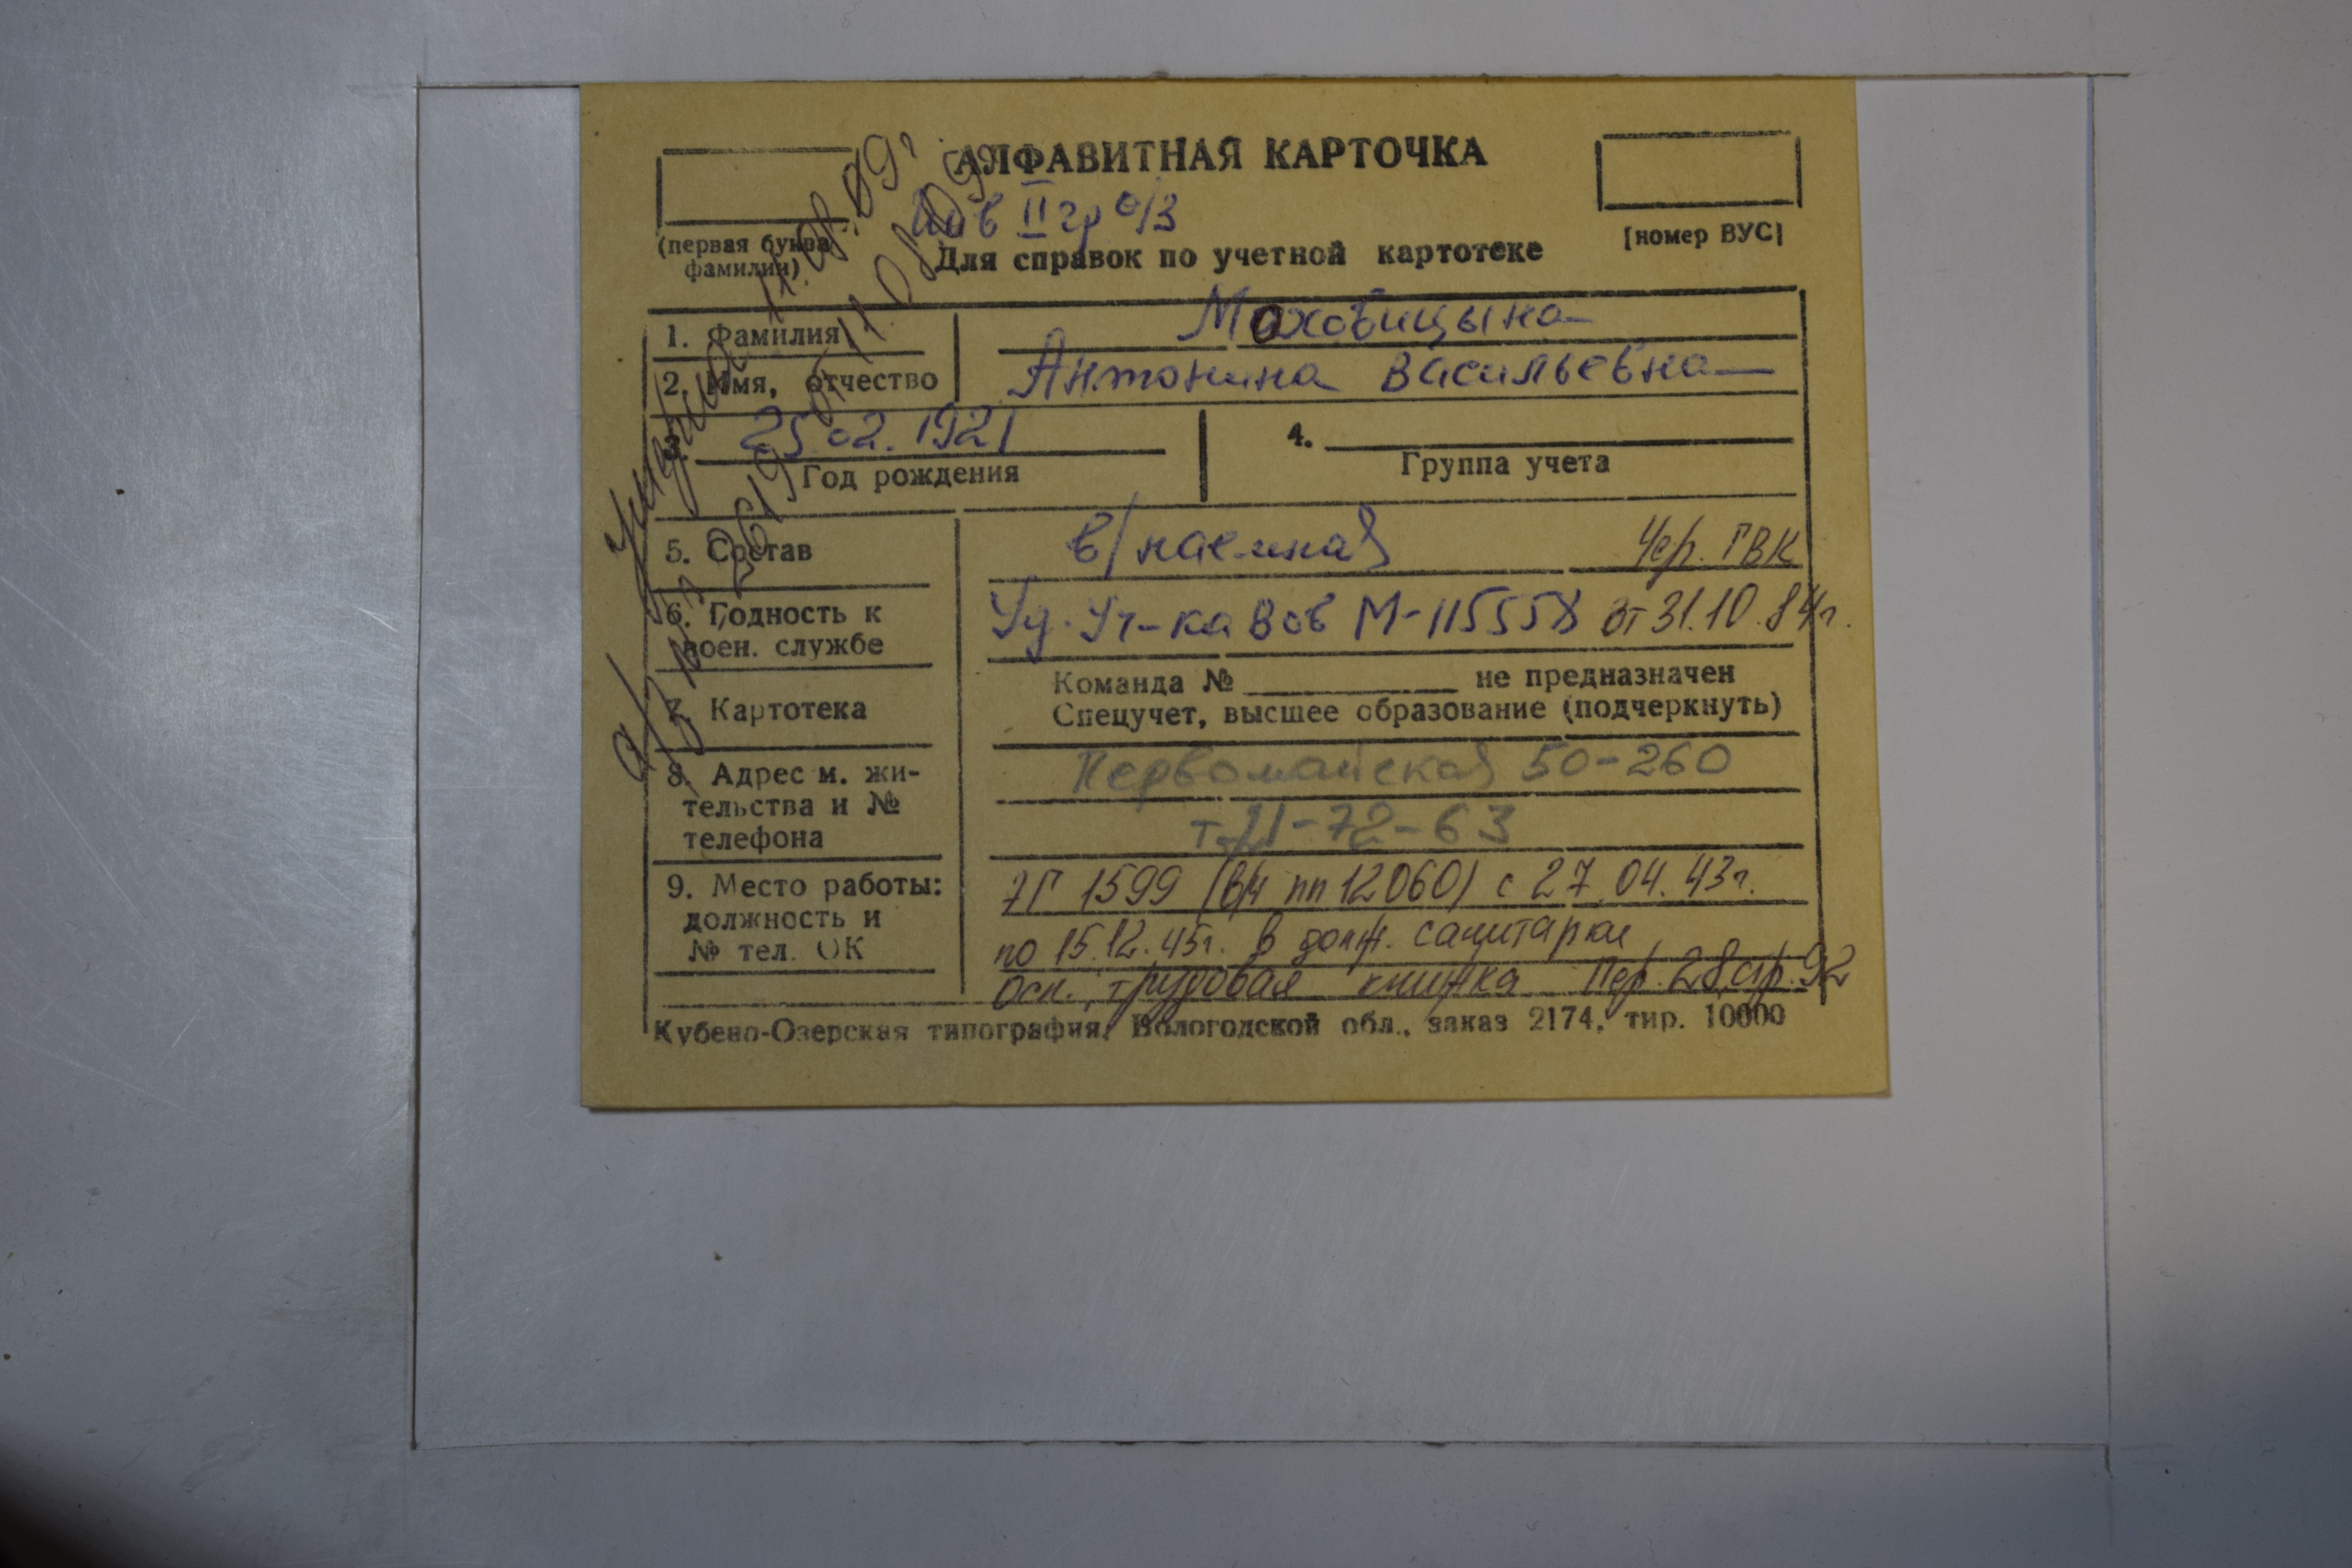 АЛФАВИТНАЯ КАРТОЧКА
Инв II гр о/з
(первая буква фамилии)
Для справок по учетной картотеке
[номер ВУС]
1. Фамилия Моховицына
2. Имя, отчество Антонина Васильевна
3. 25.02.1921
Год рождения
4.
Группа учета
5. Состав в/наемная Чер. ГВК
6. Годность к воен. службе Уд. Уч-ка Вов М-115558 от 31.10.84г.
7. Картотека
Команда № не предназначен
Спецучет, высшее образование (подчеркнуть)
8. Адрес м. жи-
тельства и №
телефона
Первомайская 50-260
т. 21-72-63
9. Место работы:
должность и
№ тел. ОК
ЭГ 1599 (в/ч пп 12060) с 27.04.43г.
по 15.12.45г. в долж. санитарки
Осн.: трудовая книжка Пер. 28, стр. 92
Кубено-Озерская типография, Вологодской обл., заказ 2174, тир. 10000
11.08.09г